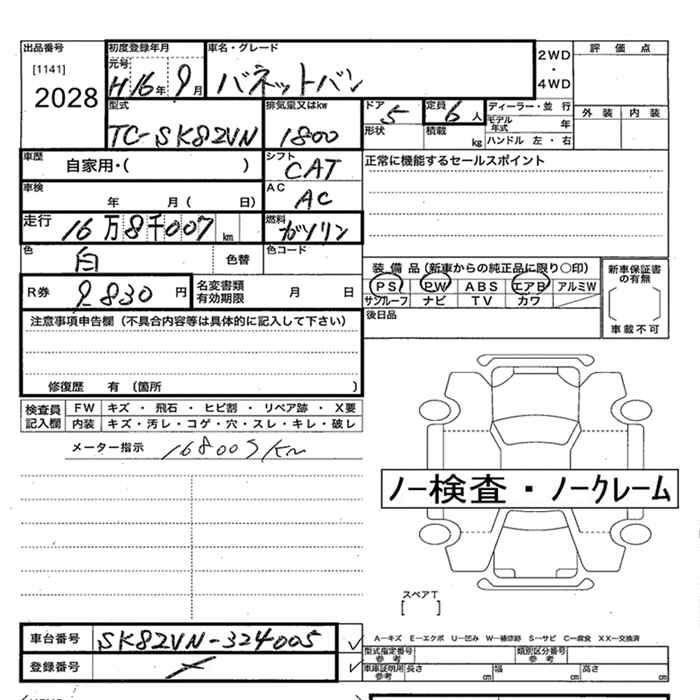 出品番号 初度登録年月 車名・グレード 2WD・4WD 評価点
[1141] 元号
2028 H16年9月 バネットバン
外装 内装
型式 排気量又はkw ドア 定員 ディーラー・並行
TC-SK82VN 1800 5 6人 モデル年式 年
形状 積載 kg ハンドル 左・右
車歴 自家用・( ) シフト CAT 正常に機能するセールスポイント
車検 年 月( 日) AC AC
走行 16万8千007km 燃料 ガソリン
色 白 色替 色コード
装備品(新車からの純正品に限り○印) 新車保証書の有無
R券 9830円 名変書類有効期限 月 日 PS PW ABS エアB アルミW
サンルーフ ナビ TV カワ
後日品 車載不可
注意事項申告欄(不具合内容等は具体的に記入して下さい)
修復歴 有(箇所 )
検査員記入欄 FW キズ・飛石・ヒビ割・リペア跡・X要
内装 キズ・汚レ・コゲ・穴・スレ・キレ・破レ
メーター指示 168009km
ノー検査・ノークレーム
スペアT
[ ]
車台番号 SK82VN-324005 A−キズ E−エクボ U−凹み W−補修跡 S−サビ C−腐食 XX−交換済
型式指定番号 参考 類別区分番号 参考
登録番号 車庫証明用 参考 長さ cm 幅 cm 高さ cm